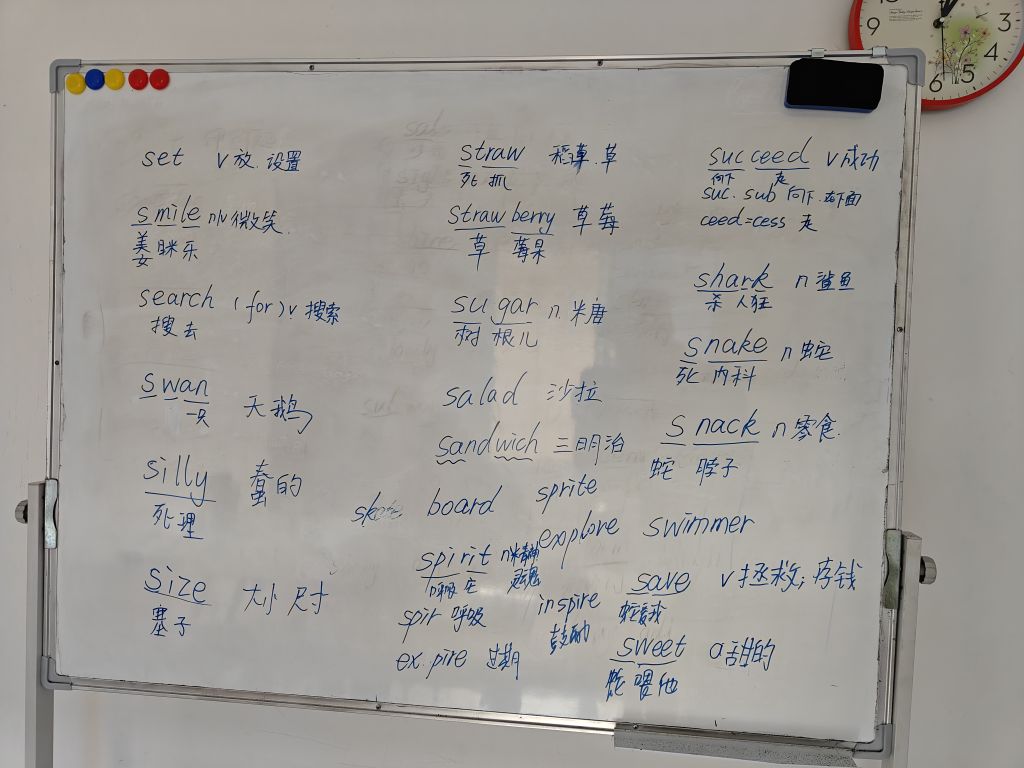 set v 放. 设置
smile n/v 微笑.
姜 眯 乐
search (for) v 搜索
搜 去
swan 天鹅
silly 蠢的
死 理
size 大小 尺寸
塞子
straw 稻草. 草
死 抓
strawberry 草莓
草 莓果
sugar n 米唐
树 根儿
salad 沙拉
sandwich 三明治
board
sprite
explore
swimmer
spirit n 精神
spir 呼吸
inspire
鼓励
expire 过期
succeed v 成功
向下 走
suc. sub 向下. 在下面
ceed=cess 走
shark n 鲨鱼
杀 人狂
snake n 蛇
死 内科
snack n 零食.
蛇 脖子
save v 拯救; 存钱
sweet a 甜的
蛇 喂他
9
3
4
5
6